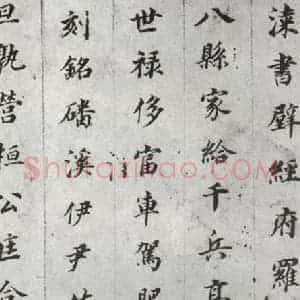 漆書壁經府羅
八縣家給千兵高
世禄侈富車駕肥
刻銘磻溪伊尹
旦孰營桓公匡合